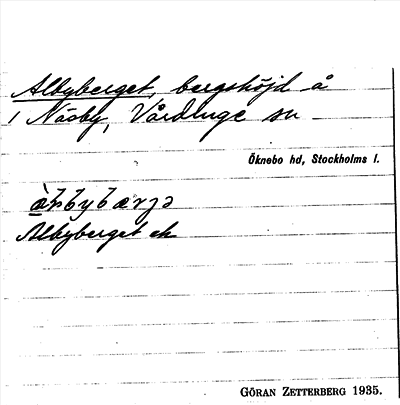 Albyberget, bergshöjd å
1 Näsby, Vårdinge sn
Öknebo hd, Stockholms l.
Albyberget ek
GÖRAN ZETTERBERG 1935.